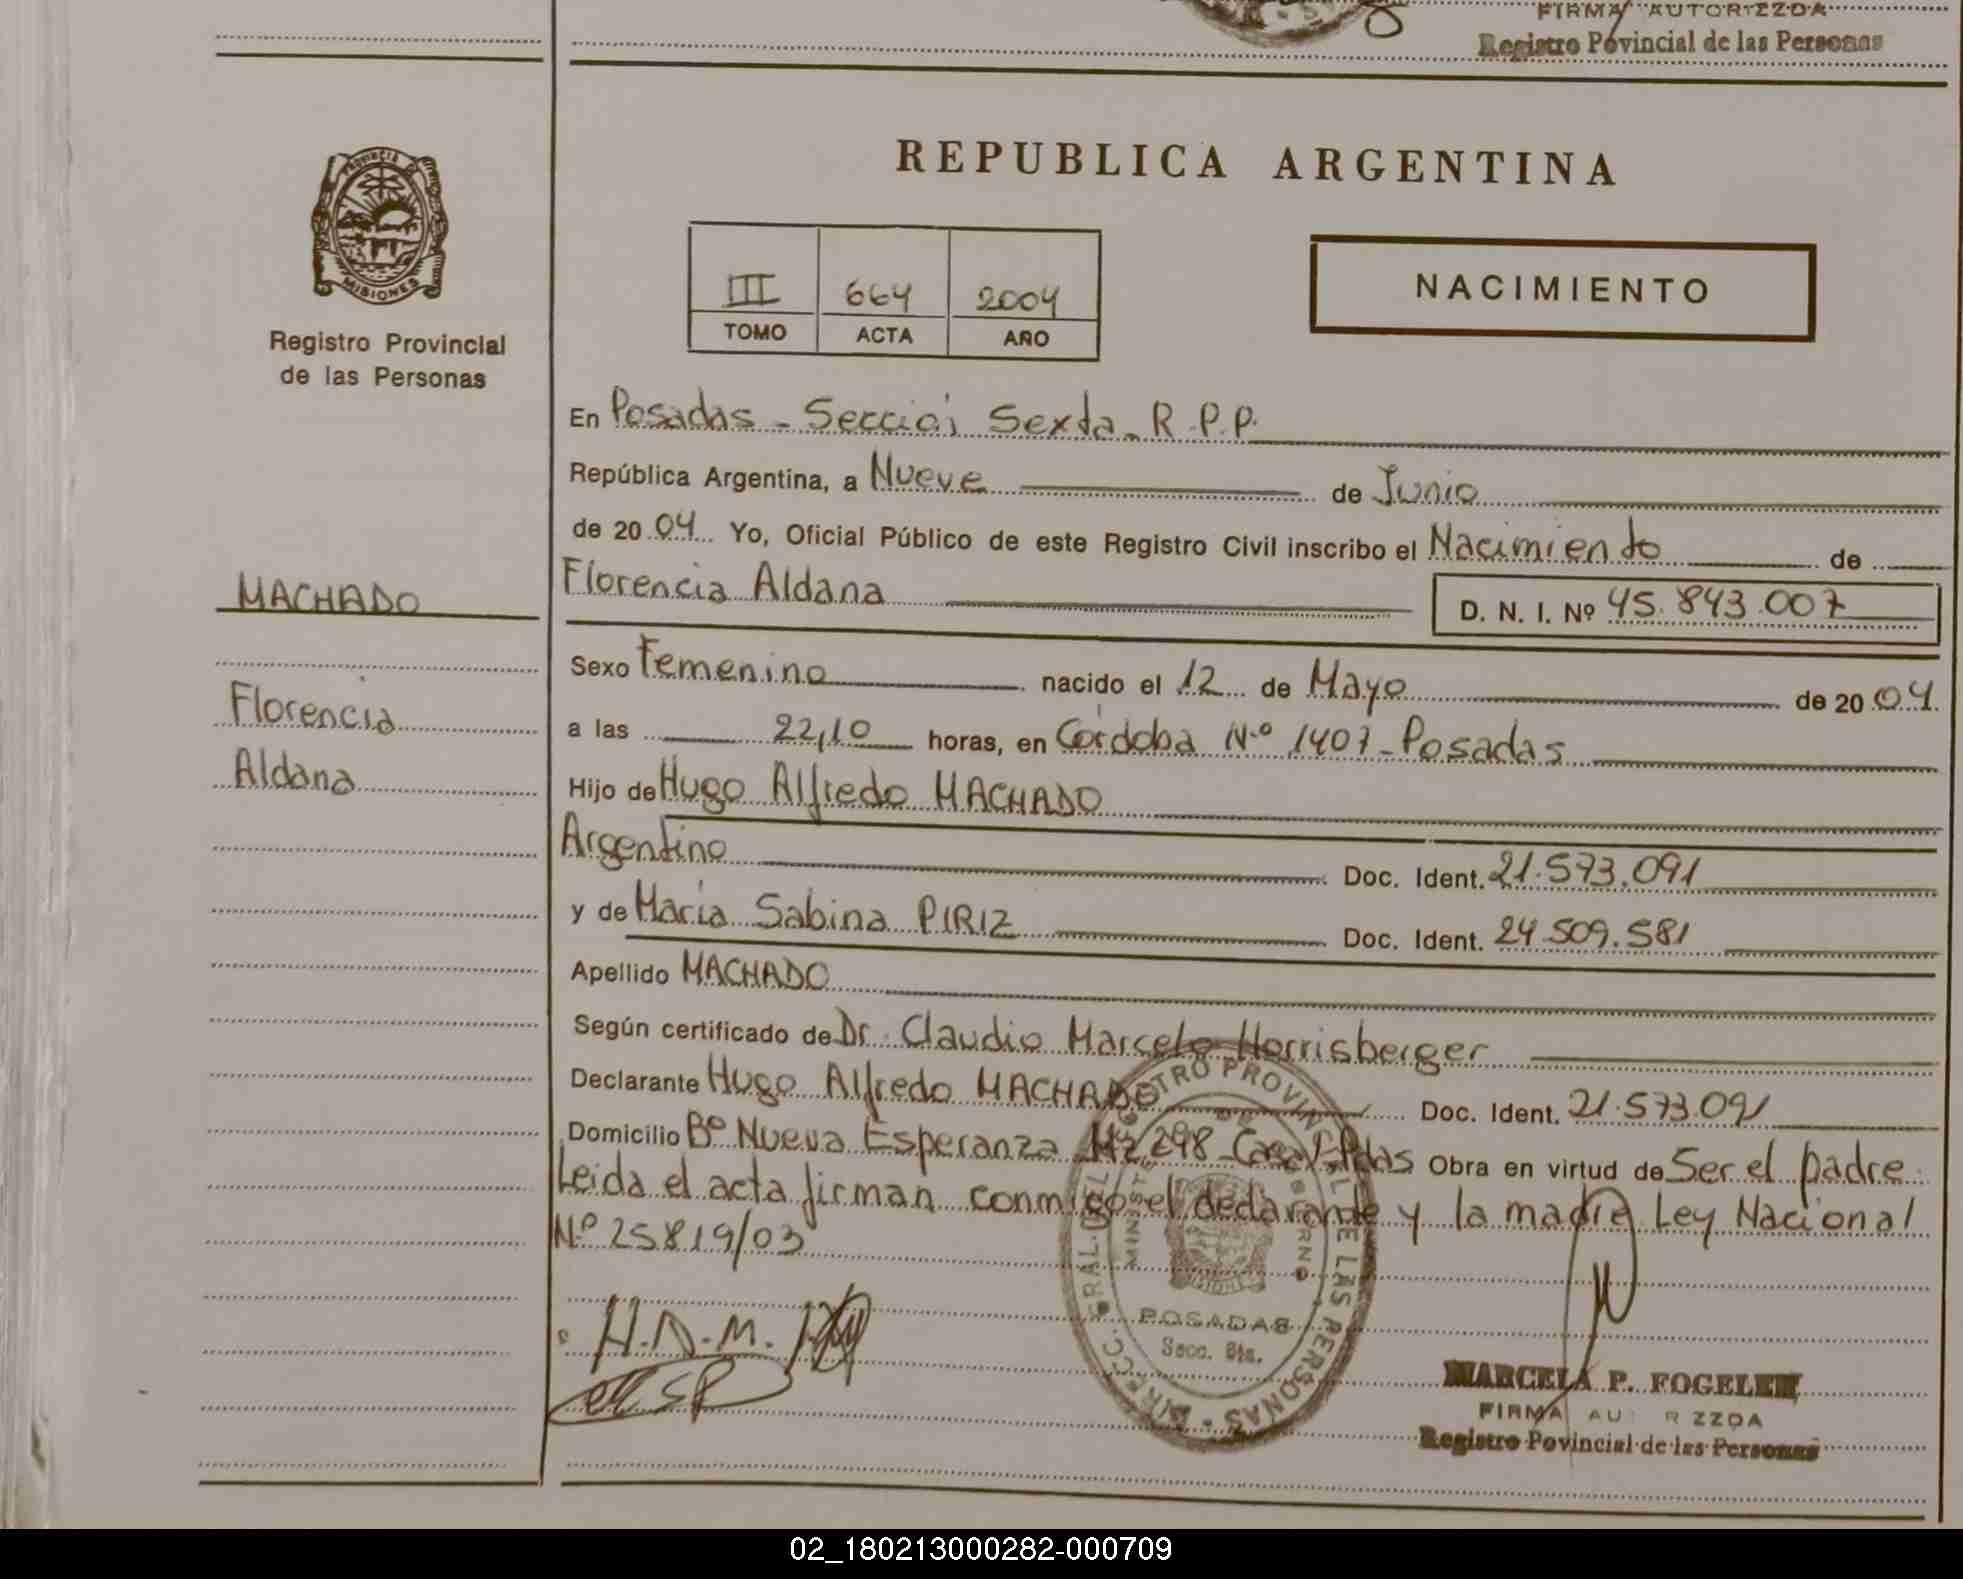 FIRMA AUTORIZZDA
Registro Povincial de las Personas
PROVINCIA DE
MISIONES
Registro Provincial
de las Personas
REPUBLICA ARGENTINA
III 664 2004
TOMO ACTA AÑO
NACIMIENTO
En Posadas - Secció Sexta - R.P.P.
República Argentina, a Nueve de Junio
de 2004 Yo, Oficial Público de este Registro Civil inscribo el Nacimiento de
Florencia Aldana D. N. I. Nº 45.843.007
MACHADO
Florencia
Aldana
Sexo Femenino nacido el 12 de Mayo de 2004
a las 22,10 horas, en Córdoba Nº 1407 - Posadas
Hijo de Hugo Alfredo MACHADO
Argentino Doc. Ident. 21.573.091
y de María Sabina PIRIZ Doc. Ident. 24.509.581
Apellido MACHADO
Según certificado de Dr. Claudio Marcelo Horrisberger
Declarante Hugo Alfredo MACHADO Doc. Ident. 21.573.091
Domicilio Bº Nueva Esperanza Mz 298 - Casa Pdas Obra en virtud de Ser el padre
Leida el acta firman conmigo el declarante y la madre Ley Nacional
Nº 25819/03
H.A.M.
POSADAS
Secc. 6ta.
MARCELA P. FOGELER
FIRMA AU RIZZDA
Registro Povincial de las Personas
02_180213000282-000709